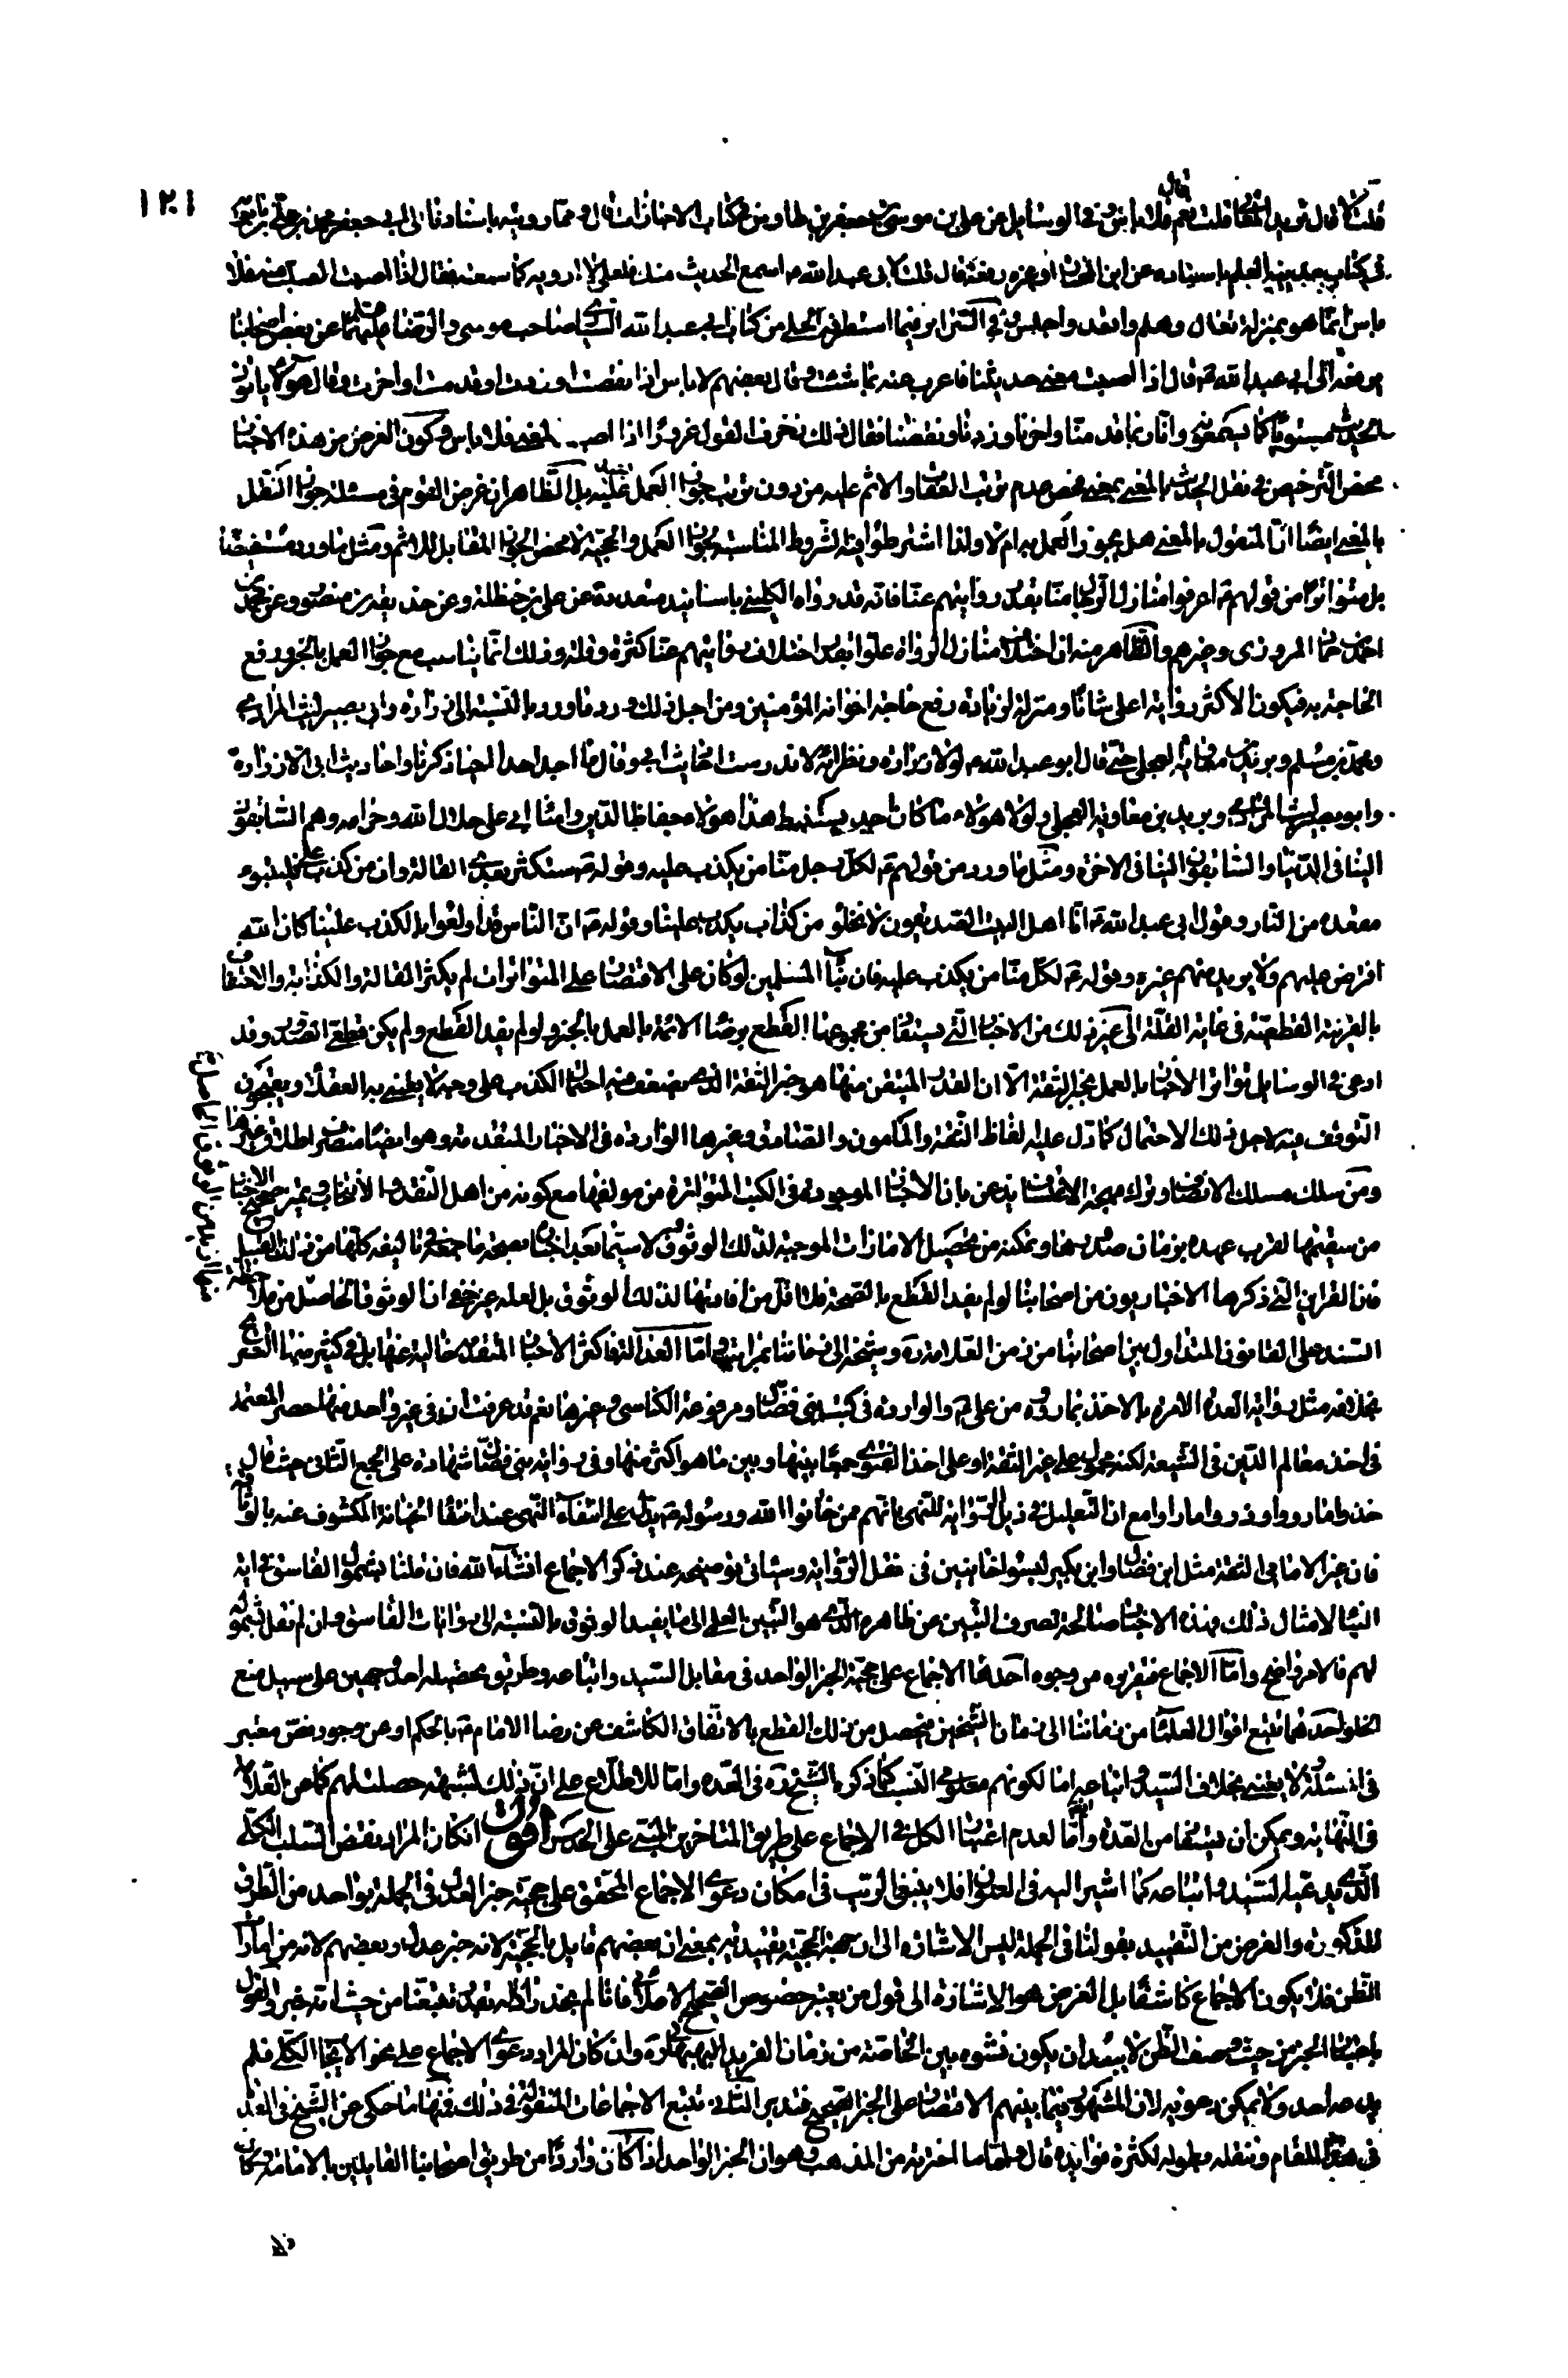 ١٢٠١
قلت لا قال تريد المعاني قلت نعم قال فلا بأس وفي الوسائل عن علي بن موسى بن جعفر بن طاوس في كتاب الاجازات قال ومما رويته باسنادنا الى ابي جعفر محمد بن علي بن بابويه
في كتاب مدينة العلم باسناده عن ابن المختار او غيره رفعه قال قلت لابي عبد الله ع اسمع الحديث منك فلعلي لا ارويه كما سمعته فقال اذا اصبت الصلب منه فلا
باس انما هو بمنزلة تعال وهلم واقعد واجلس وفي السرائر فيما استطرفه الحلي من كتاب ابي عبد الله السياري صاحب موسى والرضا عليهما عن بعض اصحابنا
يرفعه الى ابي عبد الله ع قال اذا اصبت معنى حديثنا فاعرب عنه بما شئت وقال بعضهم لا باس اذا نقصت او زدت او قدمت او اخرت وقال هؤلاء ياتون
الحديث مستويا كما يسمعونه وانا ربما قدمنا واخرنا وزدنا ونقصنا فقال ذلك زخرف القول غرورا اذا اصب المعنى فلا باس وكون الغرض من هذه الاخبار
محض الترخيص في نقل الحديث بالمعنى بمعنى محض عدم ترتب العقاب والاثم عليه من دون ترتب جواز العمل عليه بل الظاهر ان غرض القوم في مسئلة جواز النقل
بالمعنى ايضا ان المنقول بالمعنى هل يجوز العمل به ام لا ولذا اشترطوا فيه الشروط المناسبة لجواز العمل والحجية لا محض الجواز المقابل للاثم ومثل ما ورد مستفيضا
بل متواترا من قولهم ع اعرفوا منازل الرجال منا بقدر روايتهم عنا فانه قد رواه الكليني باسانيد متعددة عن علي بن حنظلة وعن حذيفة بن منصور وعن محمد بن
احمد بن حماد المروزي وغيرهم والظاهر منه ان اختلاف منازل الرواة علوا بقدر اختلاف رواياتهم عنا كثرة وقلة وذلك انما يناسب مع جواز العمل بالخبر ورفع
الحاجة به فيكون الاكثر رواية اعلى شانا ومنزلة لزيادة رفع حاجة اخوانه المؤمنين ومن اجل ذلك ورد ما ورد بالنسبة الى زرارة وابي بصير ليث المرادي
ومحمد بن مسلم وبريد بن معاوية العجلي حتى قال ابو عبد الله ع لولا زرارة ونظرائه لاندرست احاديث ابي وقال ما اجد احدا احيا ذكرنا واحاديث ابي الا زرارة
وابو بصير ليث المرادي وبريد بن معاوية العجلي ولولا هؤلاء ما كان احد يستنبط هذا هؤلاء حفاظ الدين وامناء ابي على حلال الله وحرامه وهم السابقون
الينا في الدنيا والسابقون الينا في الاخرة ومثل ما ورد من قولهم ع لكل رجل منا من يكذب عليه وقوله ع ستكثر بعدي القالة وان من كذب علي فليتبوء
مقعده من النار وقول ابي عبد الله ع انا اهل البيت الصديقون لا نخلو من كذاب يكذب علينا وقوله ع ان الناس قد اولعوا بالكذب علينا كان الله
افترض عليهم ولا يريد منهم غيره وقوله ع لكل منا من يكذب عليه فان بناء المسلمين لو كان على الاقتصار على المتواترات لم يكثر القالة والكذابة والاحتفاف
بالقرينة القطعية في غاية القلة الى غير ذلك من الاخبار التي يستفاد من مجموعها القطع برضا الائمة بالعمل بالخبر ولو لم يفد القطع ولم يكن قطعي الصدور وقد
ادعى في الوسايل تواتر الاخبار بالعمل بخبر الثقة الا ان القدر المتيقن منها هو خبر الثقة الذي يضعف فيه احتمال الكذب على وجه لا يعتني به العقلاء ويقبحون
التوقف فيه لاجل ذلك الاحتمال كما دل عليه الفاظ الثقة والمامون والصادق وغيرها الواردة في الاخبار المتقدمة وهو ايضا منصرف اطلاق غيرها
ومن سلك مسلك الانصاف وترك مهجة الاعتساف يذعن بان الاخبار الموجودة في الكتب المتواترة من مولفها مع كونه من اهل النقد والانتخاب وتميز صحيح الاخبار
من سقيمها لقرب عهده بزمان صدورها وتمكنه من تحصيل الامارات الموجبة لذلك الوثوق لا سيما بعد اخباره بصحة ما جمعه في تاليفه كلها من ذلك القبيل
فان القراين التي ذكرها الاخباريون من اصحابنا لو لم يفد القطع بالصحة فلا اقل من افادتها لذلك الوثوق بل لعله غير خفي ان الوثوق الحاصل من ملاحظة
السند على القانون المتداول بين اصحابنا من زمن العلامة ره وشيخه الى زماننا بمراتب واما العدالة فاكثر الاخبار المتقدمة خالية عنها بل وفي كثير منها التصريح
بخلافه مثل رواية العدة الامرة بالاخذ بما رووه من علي ع والواردة في كتب بني فضال ومرفوعة الكناسي وغيرها نعم قد عرفت ان في غير واحد منها حصر المعتمد
في اخذ معالم الدين في الشيعة لكنه محمول على غير الثقة او على اخذ الفتوى جمعا بينها وبين ما هو اكثر منها وفي رواية بني فضال شهادة على الجمع الثاني حيث قال
خذوا ما رووا وذروا ما راوا مع ان التعليل في ذيل الرواية للنهي بانهم ممن خانوا الله ورسوله ع يدل على انتفاء النهي عند انتفاء الخيانة المكشوف عنه بالوثاقة
فان غير الامامي الثقة مثل ابن فضال وابن بكير ليسوا خائنين في نقل الرواية وسياتي توضيحه عند ذكر الاجماع انشاء الله فان قلنا بشمول الفاسق في اية
النبا لامثال ذلك فهذه الاخبار صالحة لصرف التبين عن ظاهره الذي هو التبين العلمي الى ما يفيد الوثوق بالنسبة الى روايات الفاسق وان لم نقل بشموله
لهم فالامر واضح واما الاجماع فتقريره من وجوه احدها الاجماع على حجية الخبر الواحد في مقابل السيد واتباعه وطريق تحصيله احد وجهين على سبيل منع
الخلو احدهما تتبع اقوال العلماء من زماننا الى زمان الشيخين فيحصل من ذلك القطع بالاتفاق الكاشف عن رضا الامام ع بالحكم او عن وجود نص معتبر
في المسئلة ولا يعتنى بخلاف السيد واتباعه اما لكونهم معلومي النسب كما ذكره الشيخ ره في العدة واما للاطلاع على ان ذلك لشبهة حصلت لهم كما عن العلامة
في النهاية ويمكن ان يستفاد من العدة واما لعدم اعتبار الكل في الاجماع على طريق المتاخرين المبنى على الحدس اقول ان كان المراد نقض السلب الكلي
الذي يدعيه السيد واتباعه كما اشير اليه في العنوان فلا ينبغي الريب في امكان دعوى الاجماع المحقق على حجية خبر العدل في الجملة بواحد من الطرق
المذكورة والغرض من التقييد بقولنا في الجملة ليس الاشارة الى ان جهة الحجية تقييدية بمعنى ان بعضهم قايل بالحجية لانه خبر عدل وبعضهم لانه من امارات
الظن فلا يكون الاجماع كاشفا بل الغرض هو الاشارة الى قول من يعتبر خصوص الصحيح الاعلائي فانا لم نجد زائدا بعد تتبعنا من حيث انه خبر والقول
باعتبار الخبر من حيث وصف الظن لا يبعد ان يكون نشوه بين الخاصة من زمان الفريد البهبهاني ره وان كان المراد دعوى الاجماع على نحو الايجاب الكلي فلم
يدعه احد ولا يمكن دعويه لان المشهور فيما بينهم الاقتصار على الخبر الصحيح فتدبر الثاني تتبع الاجماعات المنقولة في ذلك فمنها ما حكي عن الشيخ في العدة
في هذا المقام وننقله بطوله لكثرة فوايده قال واما ما اخترته من المذهب وهو ان الخبر الواحد اذا كان واردا من طريق اصحابنا القايلين بالامامة وكان